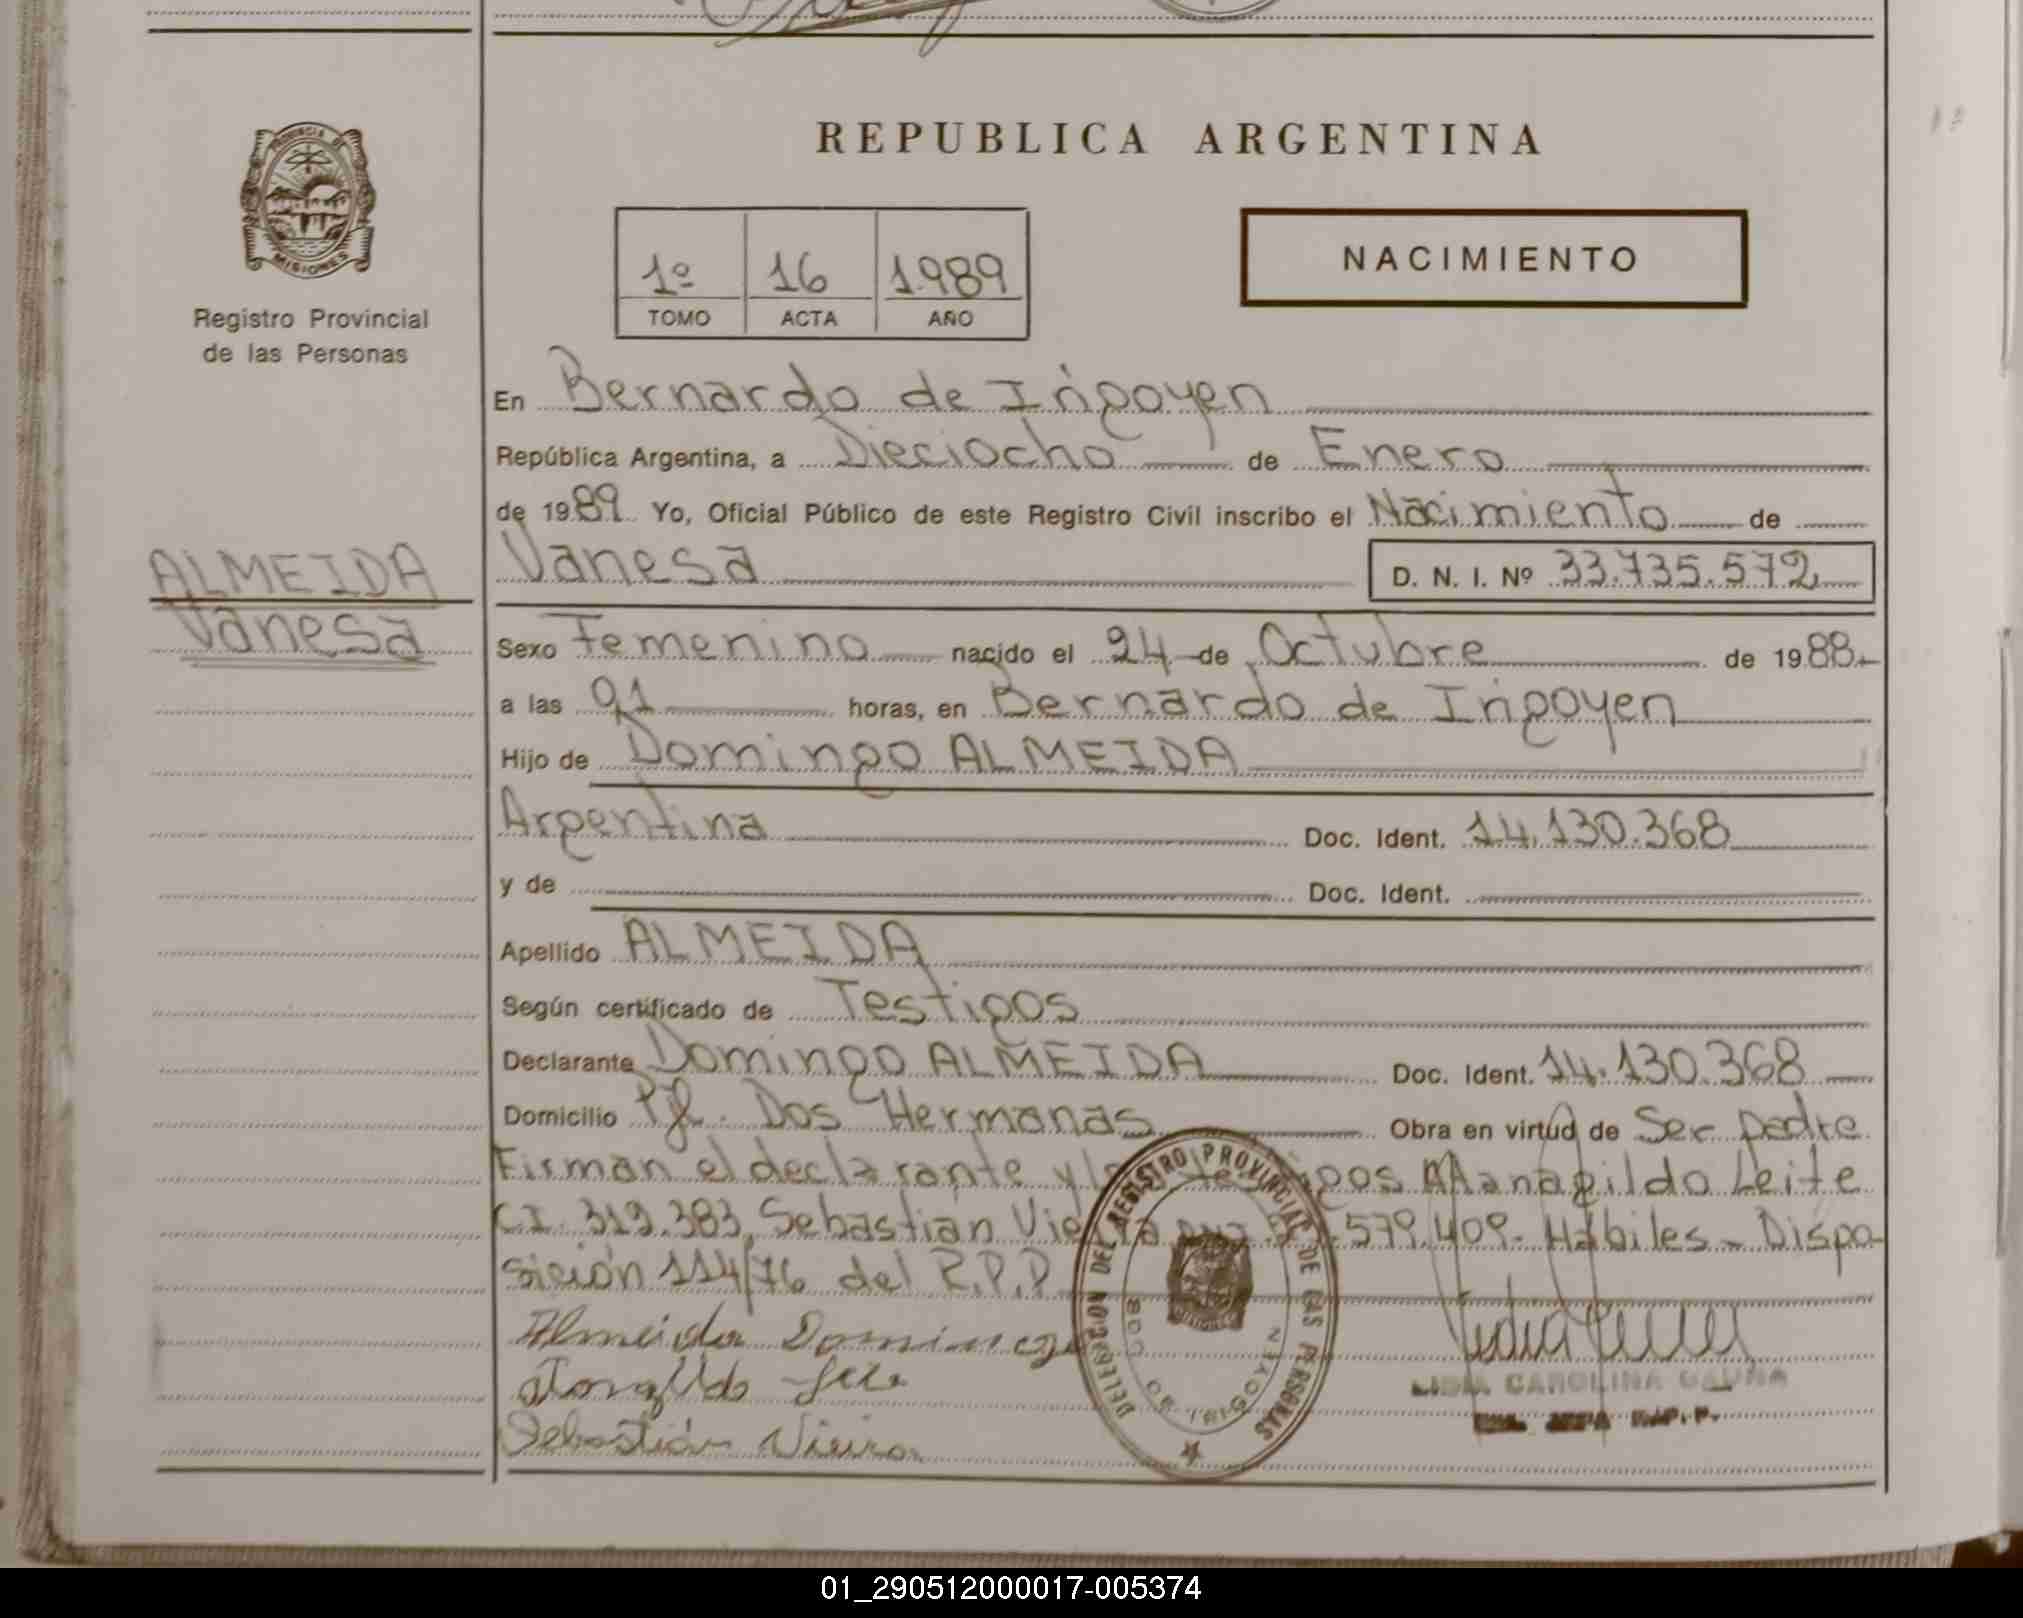 PROVINCIA DE
MISIONES
Registro Provincial
de las Personas
REPUBLICA ARGENTINA
1º 16 1.989
TOMO ACTA AÑO
NACIMIENTO
En Bernardo de Irigoyen
República Argentina, a Dieciocho de Enero
de 1989 Yo, Oficial Público de este Registro Civil inscribo el Nacimiento de
ALMEIDA
Vanesa
Vanesa D. N. I. Nº 33.735.572
Sexo Femenino nacido el 24 de Octubre de 1988
a las 01 horas, en Bernardo de Irigoyen
Hijo de Domingo ALMEIDA
Argentina Doc. Ident. 14.130.368
y de Doc. Ident.
Apellido ALMEIDA
Según certificado de Testigos
Declarante Domingo ALMEIDA Doc. Ident. 14.130.368
Domicilio Pje. Dos Hermanas Obra en virtud de Ser padre
Firman el declarante y los testigos Leite
C.I. 319.383, Sebastian Vieira .579.409. Hábiles - Dispo-
sición 114/76 del R.P.P
Almeida Domingo
Sebastián Vieira
DELEGACION DEL REGISTRO PROVINCIAL DE LAS PERSONAS
BDO DE IRIGOYEN
LIDIA CAROLINA GAUNA
R.P.P.
01_290512000017-005374